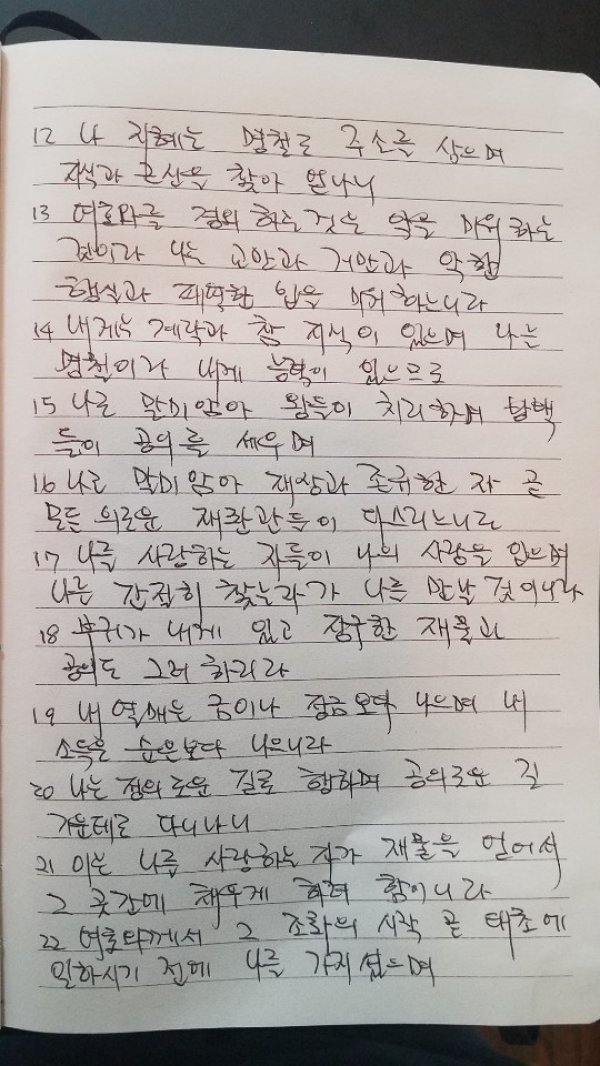 12 나 지혜는 명철로 주소를 삼으며
지식과 근신을 찾아 얻나니
13 여호와를 경외 하는 것은 악을 미워 하는
것이라 나는 교만과 거만과 악한
행실과 패역한 입을 미워 하느니라
14 내게는 계략과 참 지식이 있으며 나는
명철이라 내게 능력이 있으므로
15 나로 말미암아 왕들이 치리하며 방백
들이 공의를 세우며
16 나로 말미암아 재상과 존귀한 자 곧
모든 의로운 재판관들이 다스리느니라
17 나를 사랑하는 자들이 나의 사랑을 입으며
나를 간절히 찾는자가 나를 만날 것이니라
18 부귀가 내게 있고 장구한 재물과
공의도 그러 하리라
19 내 열매는 금이나 정금보다 나으며 내
소득은 순은보다 나으니라
20 나는 정의로운 길로 행하며 공의로운 길
가운데로 다니나니
21 이는 나를 사랑하는 자가 재물을 얻어서
그 곳간에 채우게 하려 함이니라
22 여호와께서 그 조화의 시작 곧 태초에
일하시기 전에 나를 가지셨으며